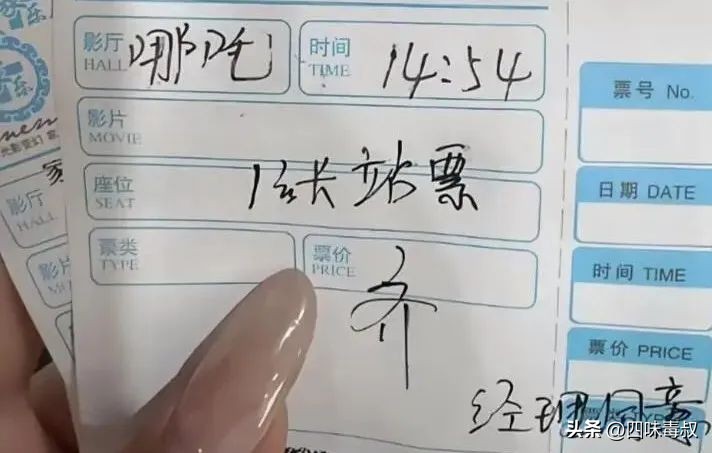 影厅 哪吒 时间 14:54
HALL TIME
影片
MOVIE
1张站票
座位
SEAT
票类 票价
TYPE PRICE
齐
经理同意
票号 No.
日期 DATE
时间 TIME
票价 PRICE
票类 TYPE
影厅
HALL
影片
头条 @四味毒叔